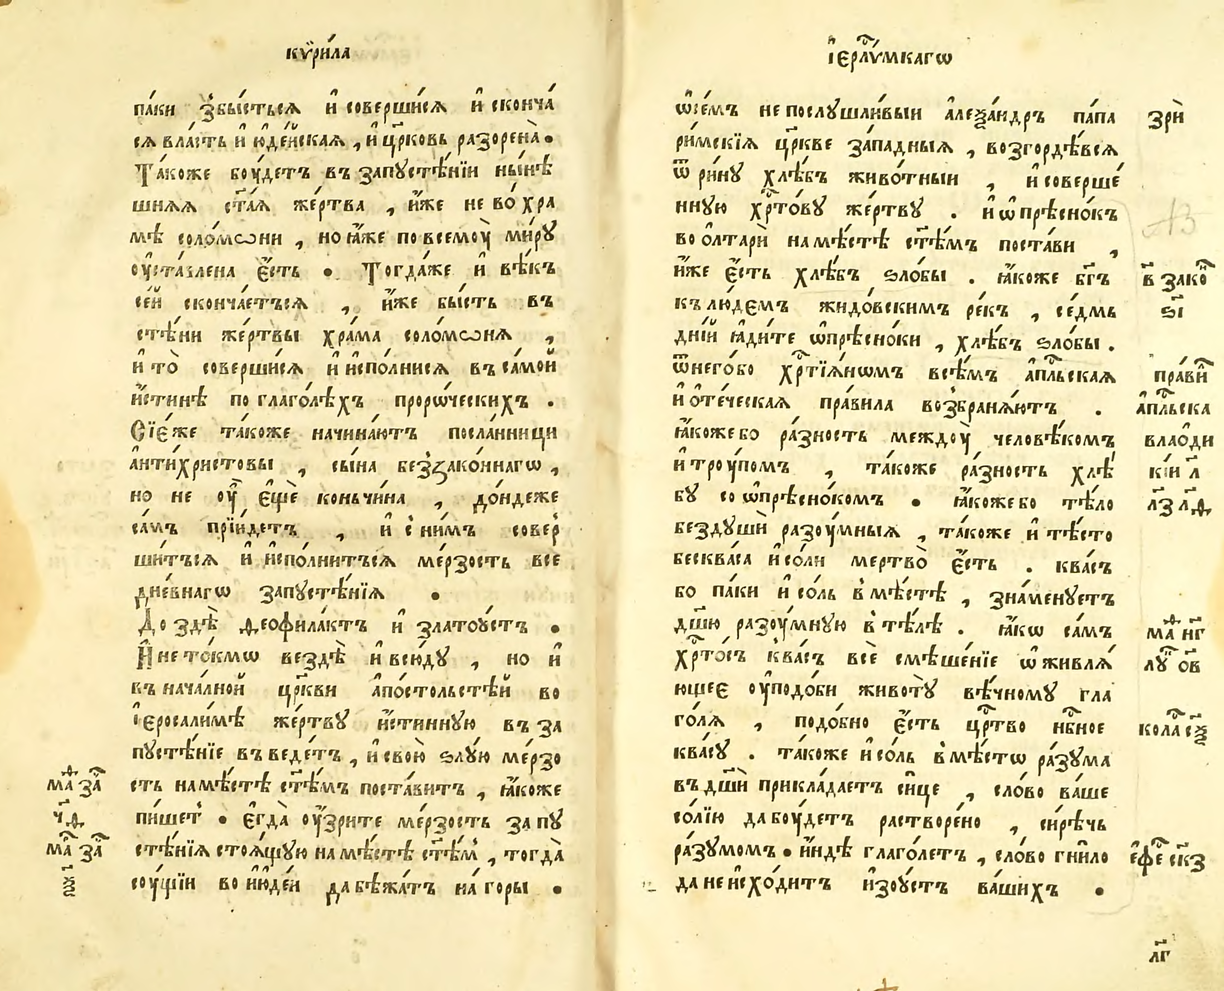 кѵри́ла
па́ки збы́стьсѧ и҆ соверши́сѧ и҆ сконча́
сѧ вла́сть и҆ ю҆де́йскаѧ , и҆ цр҃ковь разоре́на .
Та́коже бꙋ́детъ въ запꙋстѣ́нїи ны́нѣ
шнѧѧ ст҃аѧ же́ртва , и҆́же не во хра́
мѣ соломѡни , но ꙗ҆́же по всемꙋ̀ ми́рꙋ
ᲂу҆ста́влена є҆́сть . Тогда́же и҆ вѣ́къ
се́й сконча́етьсѧ , и҆́же бы́сть въ
стѣ́ни же́ртвы хра́ма соло́мѡнѧ ,
и҆ то̀ соверши́сѧ и҆ и҆спо́лнисѧ въ са́мой
и҆́стинѣ по глаго́лѣхъ проро́ческихъ .
Сїе́же та́коже начина́ютъ посла́нници
а҆нти́христовы , сы́на беззако́ннагѡ ,
но не ᲂу҆̀ є҆щѐ коньчи́на , до́ндеже
са́мъ прїи́детъ , и҆ с ни́мъ совер
ши́тъсѧ и҆ и҆спо́лнитъсѧ ме́рзость все
дне́внагѡ запꙋстѣ́нїѧ .
До здѣ̀ ѳеофила́ктъ и҆ златоꙋ́стъ .
И҆ не то́кмѡ вездѣ̀ и҆ всю́дꙋ , но и҆
въ нача́лной цр҃кви а҆по́стольстѣй во
і҆еросали́мѣ же́ртвꙋ и҆́стиннꙋю въ за
пꙋстѣ́нїе въведе́тъ , и҆ свою̀ ѕлꙋ́ю ме́рзо
ма ѳ за҃ сть на мѣ́стѣ ст҃ѣмъ поста́витъ , ꙗ҆́коже
ч҃д пи́шетъ . є҆гда̀ ᲂу҆́зрите ме́рзость запꙋ
ма ѳ за҃ стѣ́нїѧ стоѧ́щꙋю на мѣ́стѣ ст҃ѣмъ , тогда̀
ѯ҃ сꙋ́щїи во и҆ю҆де́и да бѣжа́тъ на́ горы .
і҆ерлⷭ҇ꙋмкагѡ
ѡ҆ се́мъ не послꙋшли́выи а҆леѯа́ндръ па́па зрѝ
ри́мскїѧ цр҃кве за́падныѧ , возгордѣ́всѧ
ѿри́нꙋ хлѣ́бъ живо́тныи , и҆ соверше́
ннꙋю хрⷭ҇то́вꙋ же́ртвꙋ . и҆ ѡ҆прѣсно́къ
во ѻ҆лтарѝ на мѣ́стѣ ст҃ѣмъ поста́ви ,
и҆́же є҆́сть хлѣ́бъ ѕло́бы . ꙗ҆́коже бг҃ъ в҃ зако
къ лю́демъ жидо́вскимъ ре́къ , се́дмь ѕ҃і
дні́й ꙗ҆ди́те ѡ҆прѣсно́ки , хлѣ́бъ ѕло́бы .
ѿнего́бо хрⷭ҇тїѧ́нѡмъ всѣ́мъ а҆пⷭ҇льскаѧ пра́ви
и҆ ѻте́ческаѧ пра́вила возбранѧ́ютъ . а҆пⷭ҇льска
ꙗ҆́коже бо ра́зность междꙋ̀ человѣ́комъ влаᲂди
и҆ трꙋ́помъ , та́коже ра́зность хлѣ́ кїи л҃
бꙋ со ѡ҆прѣсно́комъ . ꙗ҆́коже бо тѣ́ло л҃з л҃ѳ
бездꙋшѝ разꙋ́мныѧ , та́коже и҆ тѣ́сто
бесква́са и҆ со́ли мертво̀ є҆́сть . ква́съ
бо па́ки и҆ со́ль в мѣ́стѣ , зна́менꙋетъ
дш҃ю разꙋ́мнꙋю в тѣ́лѣ . ꙗ҆́кѡ са́мъ ма ѳ нг҃
хрⷭ҇то́съ ква́съ всѐ смѣше́нїе ѡ҆живлѧ́ лꙋ ѻ҃в
ющее ᲂу҆подо́би животꙋ̀ вѣ́чномꙋ гла
го́лѧ , подо́бно є҆́сть црⷭ҇тво нбⷭ҇ное кола сѯ҃
ква́сꙋ . та́коже и҆ со́ль в мѣ́стѡ ра́зꙋма
въ дш҃и прикла́даетъ си́це , сло́во ва́ше
со́лїю да бꙋ́детъ раство́рено , си́рѣчь
ра́зꙋмомъ . и҆́ндѣ глаго́летъ , сло́во гни́ло є҆фе ск҃з
да не и҆схо́дитъ и҆зꙋ́стъ ва́шихъ .
л҃г